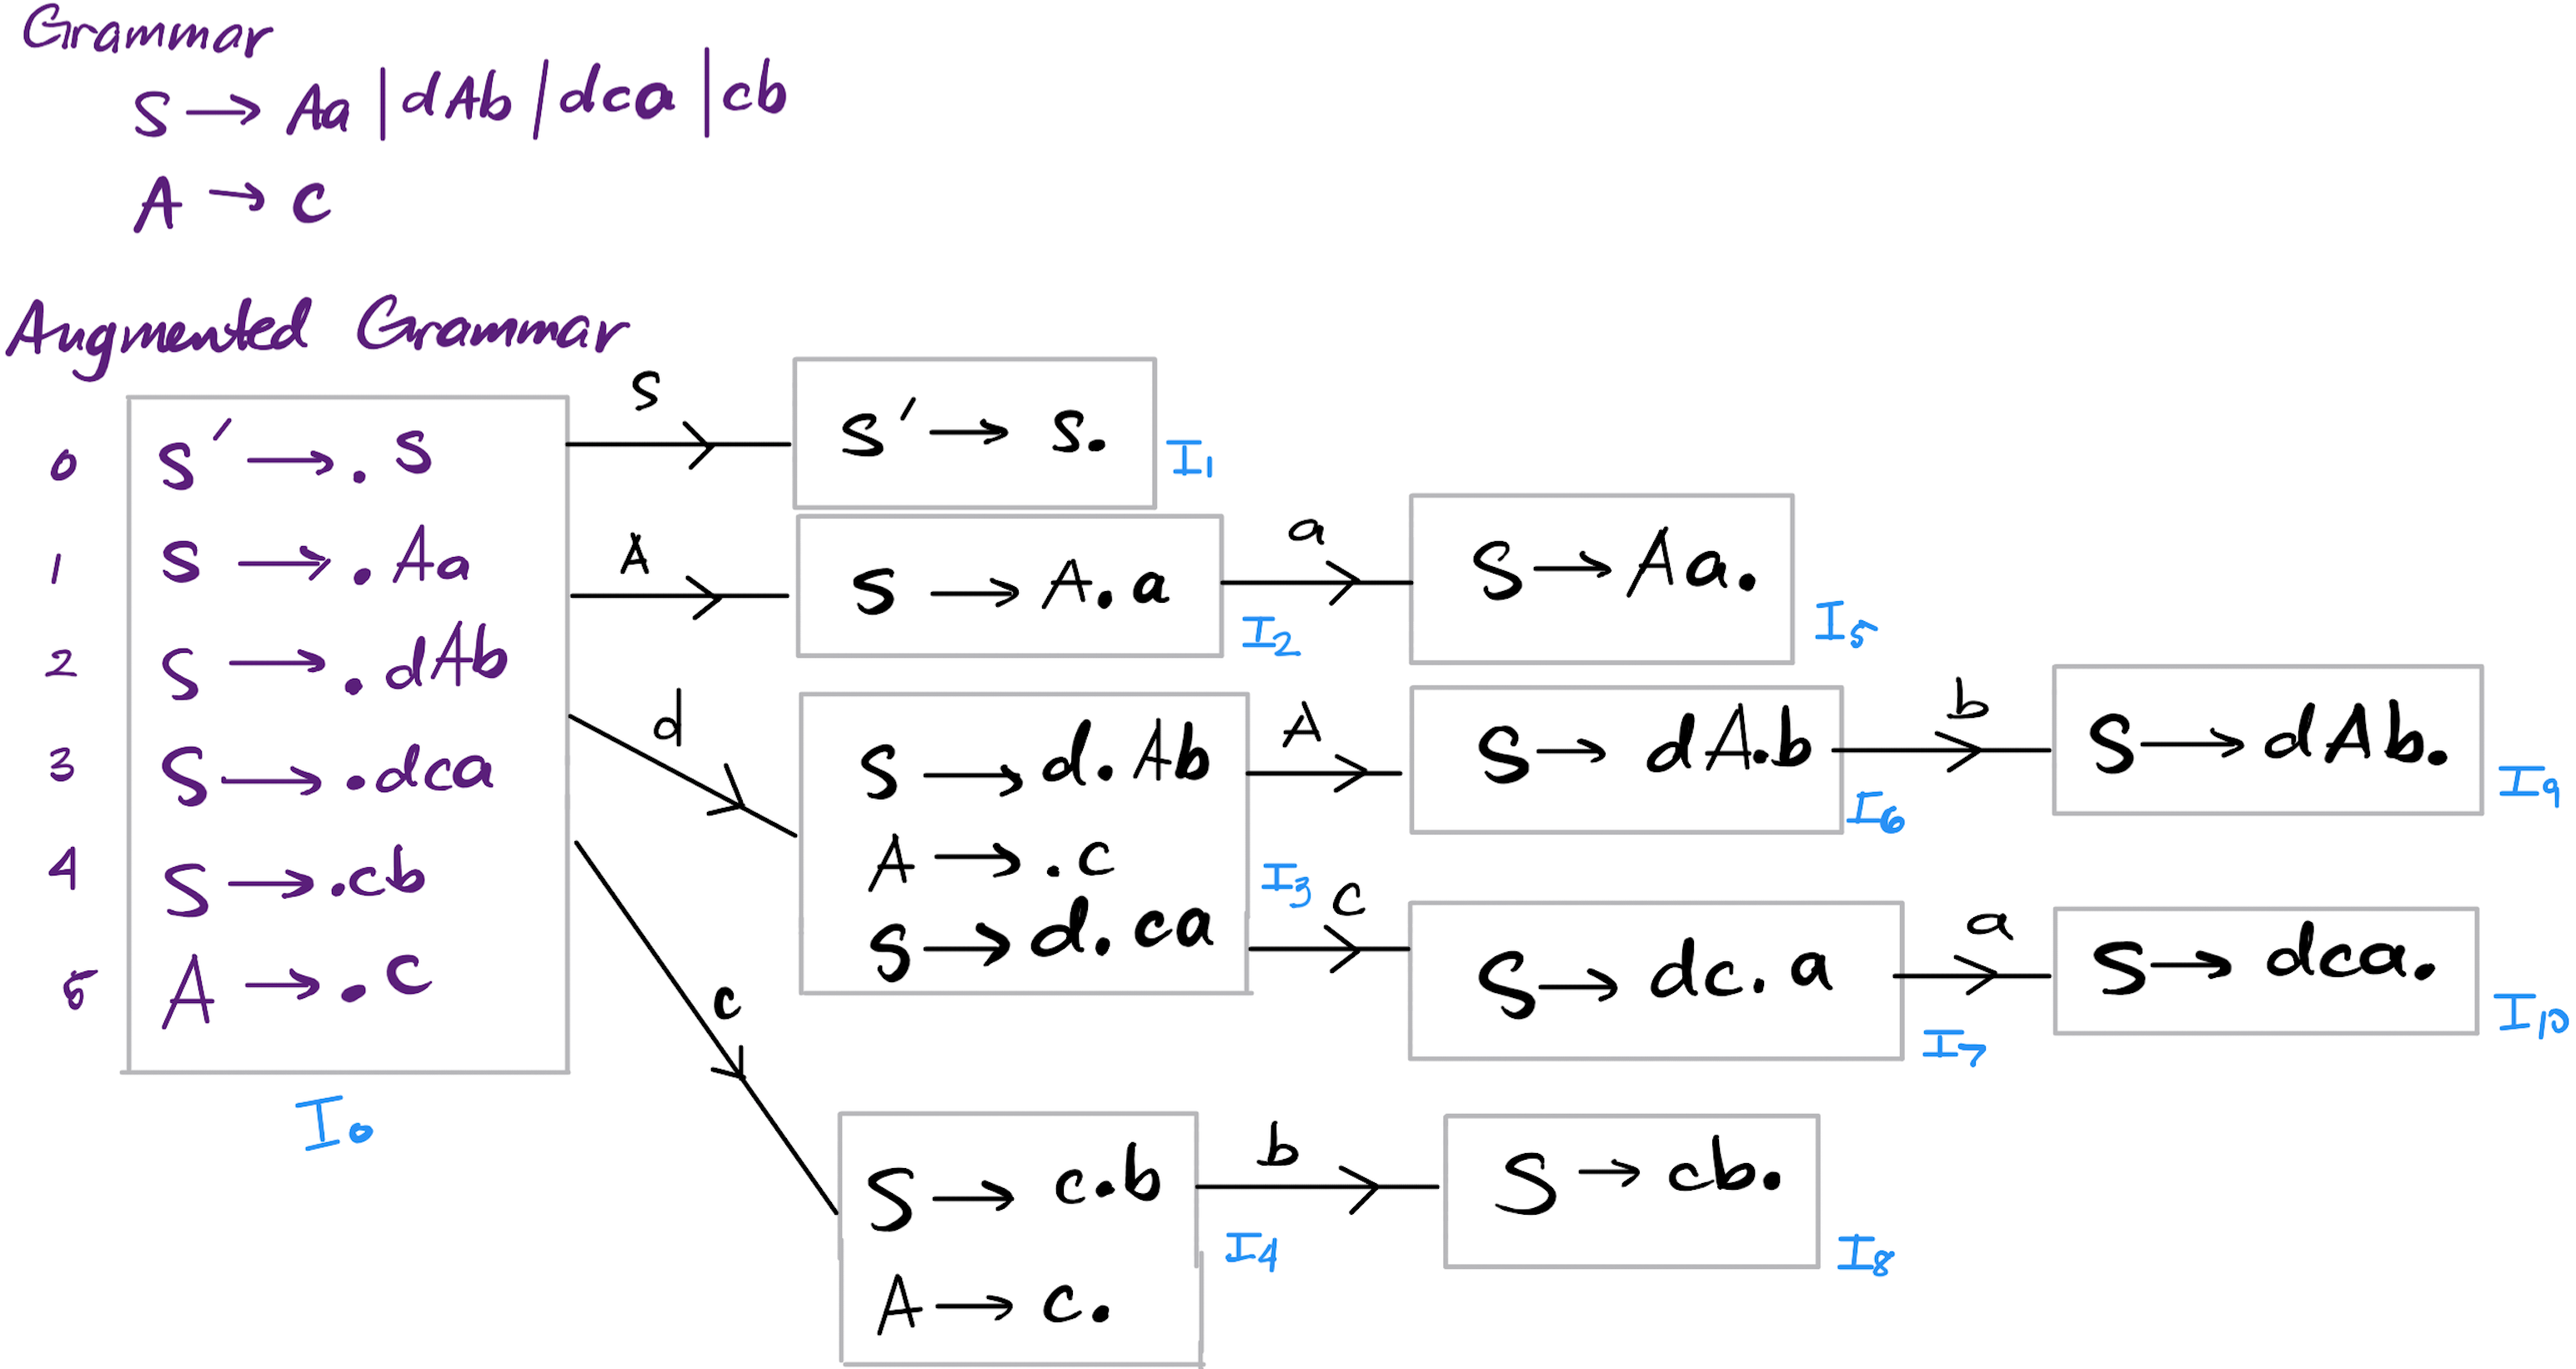 Grammar
S → Aa | dAb | dca | cb
A → c
Augmented Grammar
0 S' → .S
1 S → .Aa
2 S → .dAb
3 S → .dca
4 S → .cb
5 A → .c
I0
S
S' → S.
I1
A
S → A.a
I2
a
S → Aa.
I5
d
S → d.Ab
A → .c
S → d.ca
I3
A
S → dA.b
I6
b
S → dAb.
I9
c
S → dc.a
I7
a
S → dca.
I10
c
S → c.b
A → c.
I4
b
S → cb.
I8